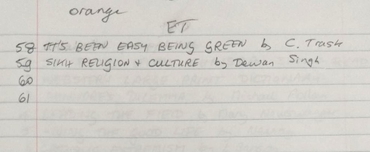 orange
ET
58 IT'S BEEN EASY BEING GREEN by C. Trash
59 SIKH RELIGION & CULTURE by Dewan Singh
60
61